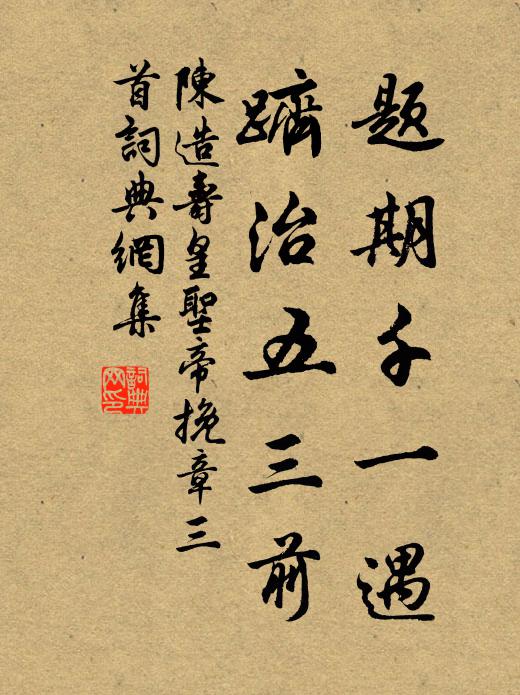 題期千一遇
躋治五三前
陳造壽皇聖帝挽章三
首詞典網集
詞典
网印